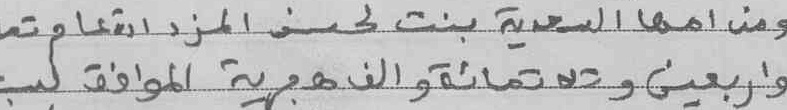 ومن امها السعدية بنت لحسن المزدادة عام
واربعين وثلاثمائة والف هجرية الموافق